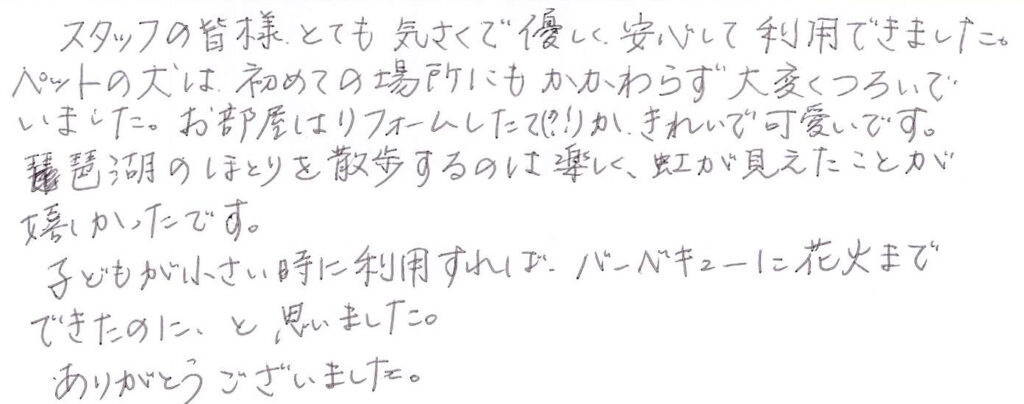 スタッフの皆様、とても気さくで優しく、安心して利用できました。
ペットの犬は、初めての場所にもかかわらず大変くつろいで
いました。お部屋はリフォームしたて(?!)か、きれいで可愛いです。
琵琶湖のほとりを散歩するのは楽しく、虹が見えたことが
嬉しかったです。
子どもが小さい時に利用すれば、バーベキューに花火まで
できたのに、と思いました。
ありがとうございました。